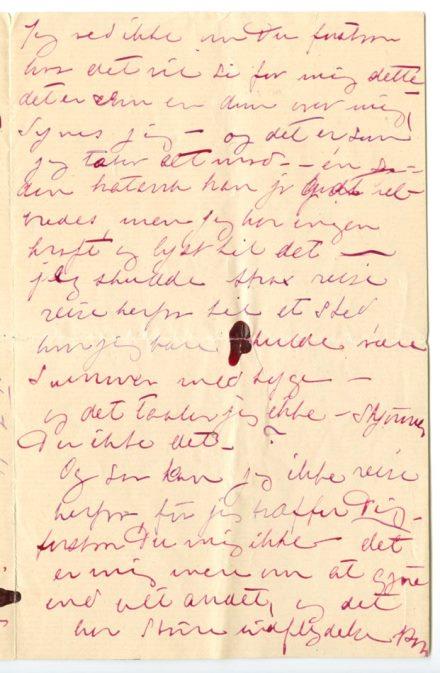 Jeg ved ikke om Du forstaar
hva det vil si for mig dette
det er som en dom over mig
Synes jeg — og det er som
jeg taber alt mod - - én
din kan jo godt
vredes men jeg har ingen
kraft og lyst til det —
jeg skulde strax reise
reise herfra til et Sted
hvor jeg bare skulde være
Sammen med syge —
og det taaler jeg ikke — Skjønner
Du ikke det — ?
Og saa kan jeg ikke reise
herfra før jeg træffer Dig —
forstaar Du mig ikke — det
er mig mere om at gjøre
end alt andet, og det
har større indflydelse